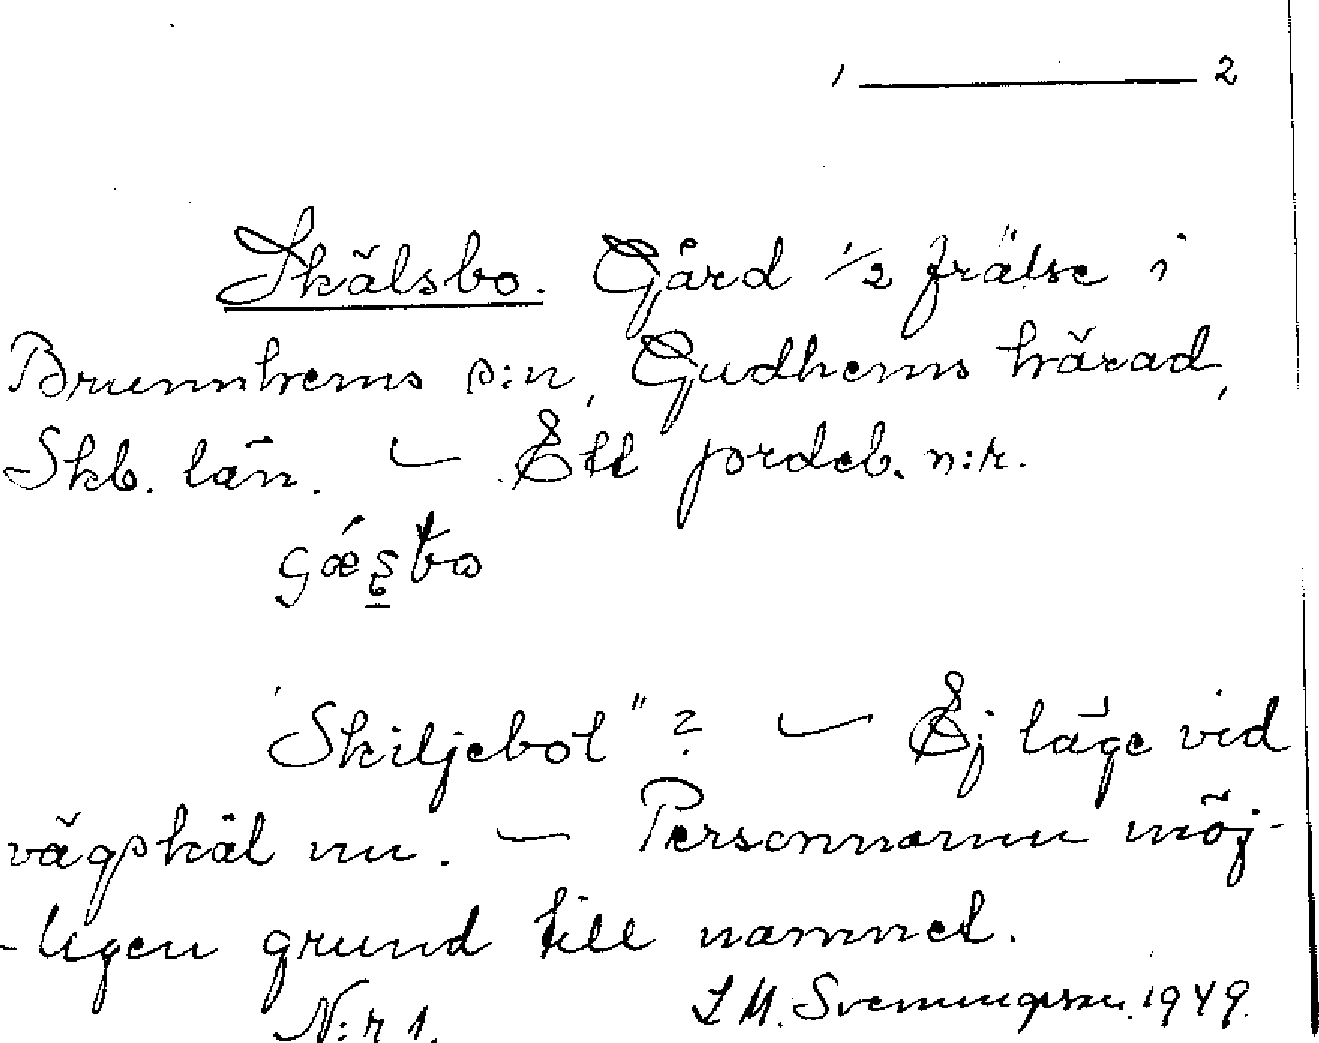 1 ——— 2
Skälsbo. Gård 1/2 frälse i
Brunnhems s:n, Gudhems härad,
Skb. län. — Ett jordeb. n:r.
"Skiljebol"? — Ej läge vid
vägskäl nu. — Personnamn möj-
-ligen grund till namnet.
N:r 1. L M. Svenungsson. 1949.